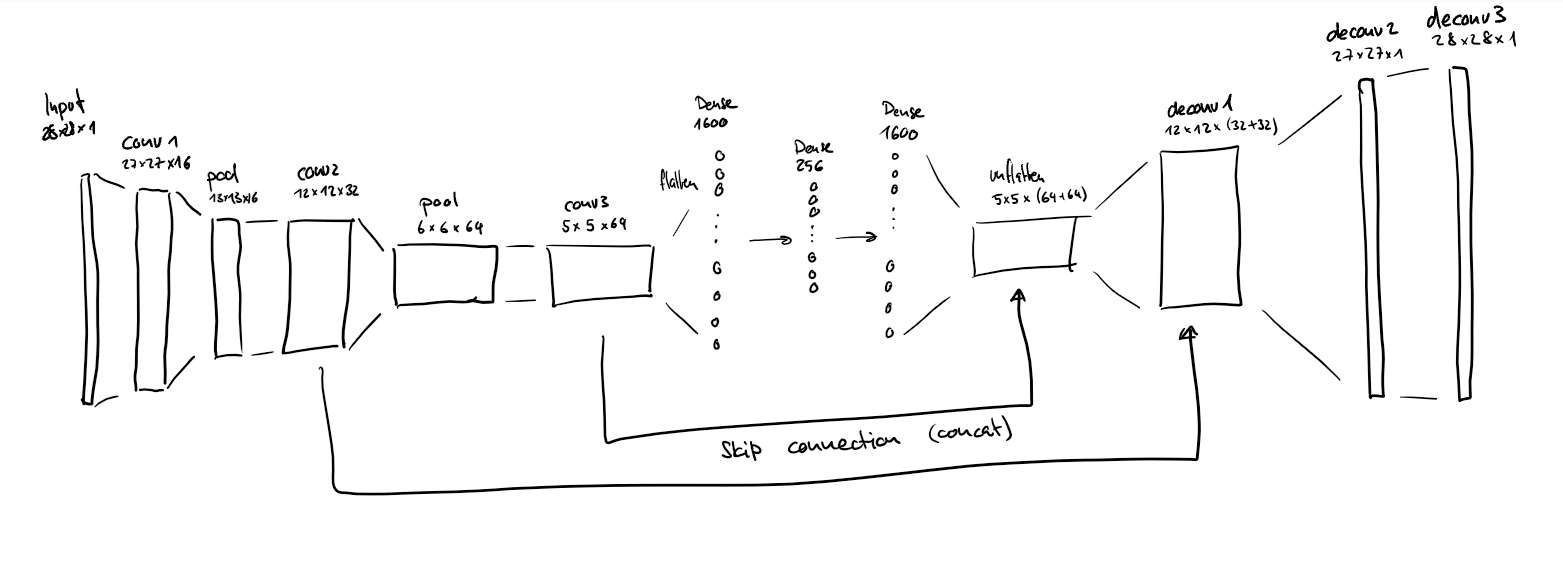 Input
28x28x1
conv 1
27x27x16
pool
13x13x16
conv2
12x12x32
pool
6x6x64
conv3
5x5x64
flatten
Dense
1600
Dense
256
Dense
1600
unflatten
5x5x(64+64)
deconv1
12x12x(32+32)
deconv2
27x27x1
deconv3
28x28x1
Skip connection (concat)